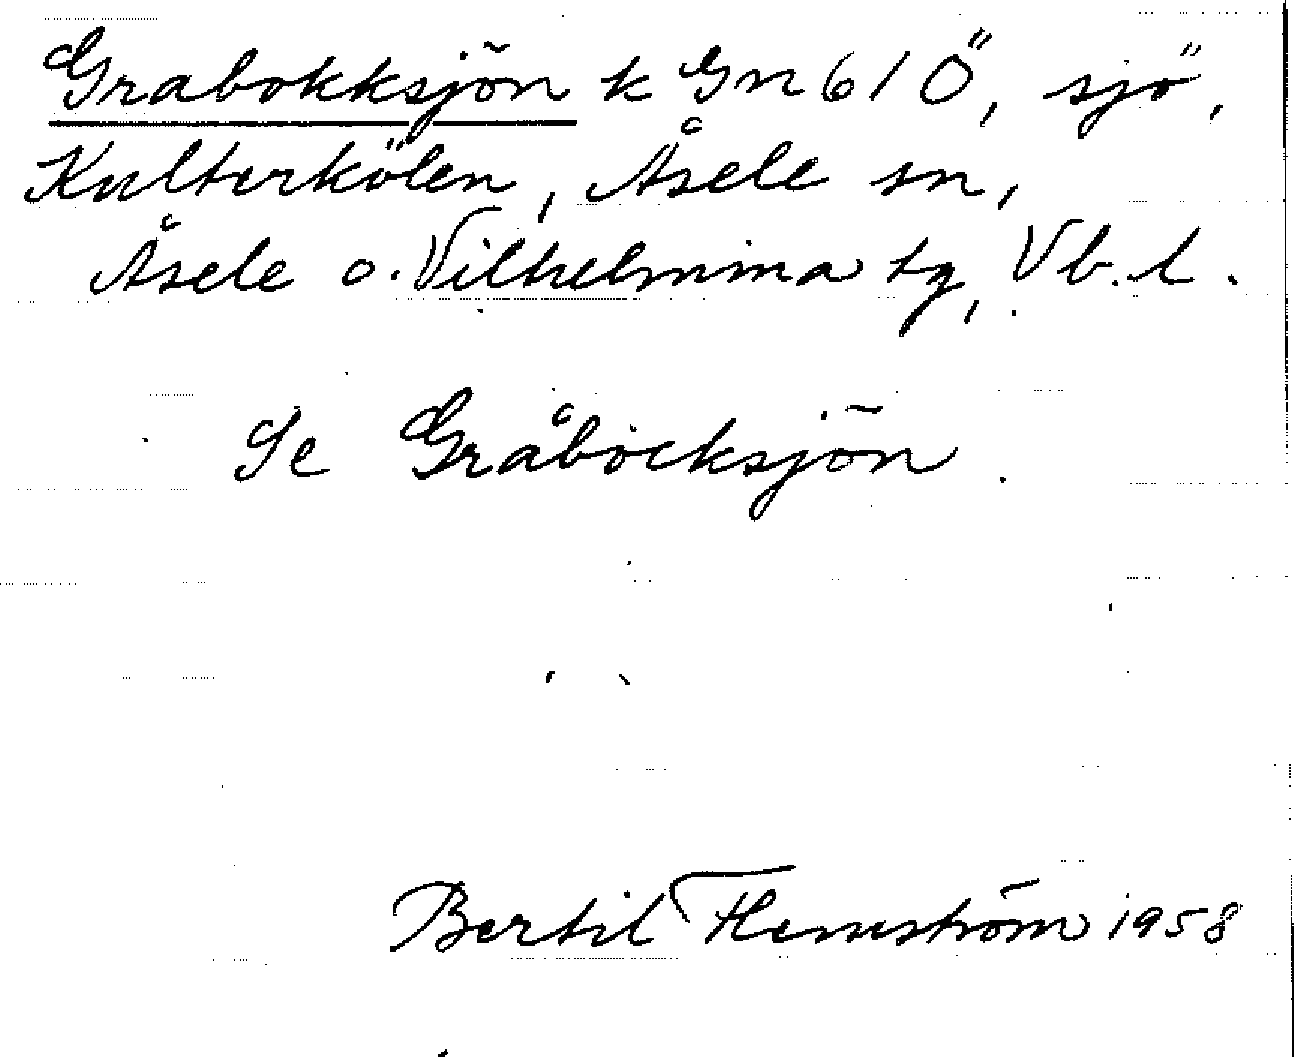 Grabokksjön k Gn 61 Ö, sjö,
Kulterkölen, Åsele sn,
Åsele o. Vilhelmina tg, Vb. l.
Se Gråbocksjön.
Bertil Flemström 1958